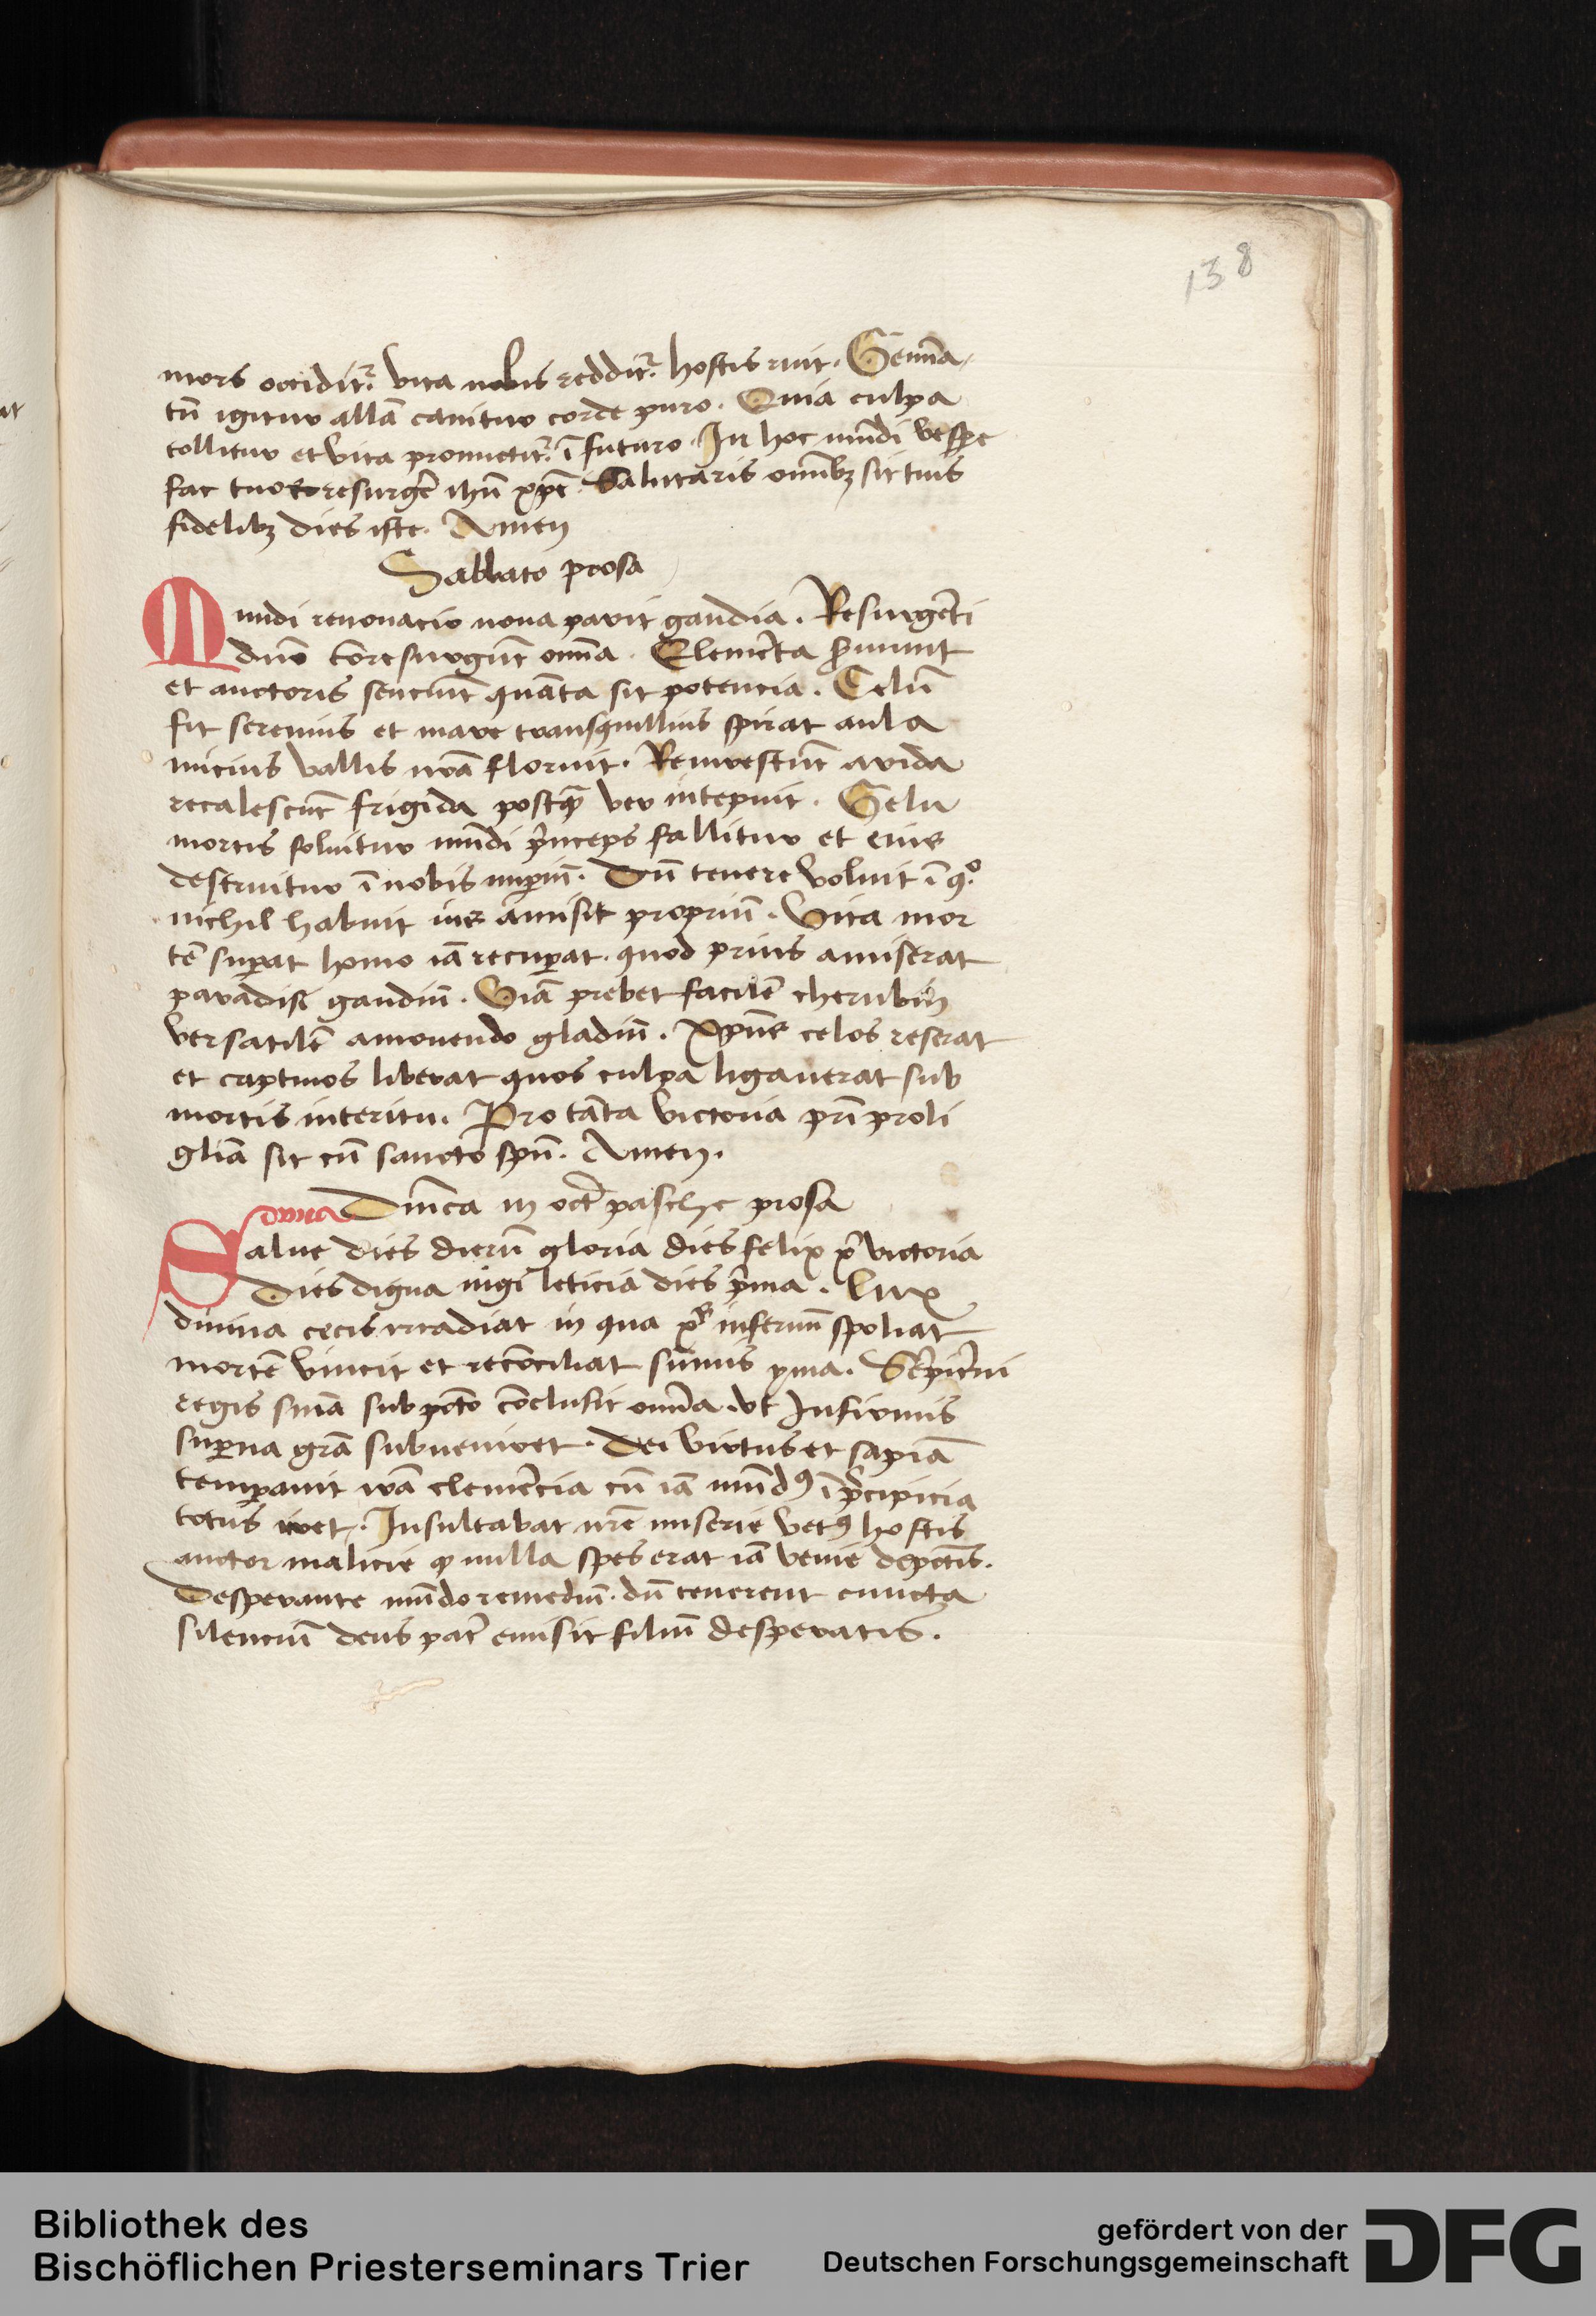 138
mors occidit᷑ vita nobis reddit᷑ hostis ruit. Gemīa
tū igitur allā canitur corde puro. Quia culpa
tollitur et vita promictit᷑ ī futuro. In hoc mūdi vespe
fac tuos resurgē ihū xpē. Salutaris omībꝫ sit tuis
fidelibꝫ dies iste. Amen
Sabbato prosa
Mundi renouacio noua parit gaudia. Resurgēti
dn̄o cōresurgūt omīa. Elemēta ꝓuiunt
et auctoris senciūt quāta sit potencia. Celū
fit serenius et mare tranquillius spirat aula
micius vallis nrā floruit. Reuirescūt arida
recalescūt frigida postq̄ ver intepuit. Gelu
mortis soluitur mūdi p̄nceps fallitur et eius
destruitur ī nobis imꝑiū. Dū tenere voluit ī qͦ
nichil habuit ius amisit propriū. Vita mor
tē suꝑat homo iā recuꝑat. quod prius amiserat
paradisi gaudiū. Viā prebet facilē cherubin
versatilē amouendo gladiū. Xpūs celos reserat
et captiuos liberat quos culpa ligauerat sub
mortis interitu. Pro tāta victoria pr̄i proli
gliā sit cū sancto spū. Amen.
Dn̄ica in oct̄ pasche prosa
Salue dies dierū gloria dies felix xͥ victoria
Dies digna iugi leticia dies p̄ma. Lux
diuina cecis irradiat in qua xp̄s infernū spoliat
mortē vincit et recōciliat sūmis yma. Sēpit̄ni
regis snīa sub pctō cōclusit omīa. vt Infirmis
suꝑna grā subueniret. Dei virtus et sapiā
temꝑauit irā clemēcia cū iā mūdꝰ ī p̄cipicia
totus iret. Insultabat nr̄e miserie vetꝰ hostis
auctor malicie ꝙ nulla spes erat iā venie de pctīs.
Desperante mūdo remediū. dū tenerent cuncta
silenciū deus pat̄ emisit filiū desperatis.
Bibliothek des
Bischöflichen Priesterseminars Trier
gefördert von der
Deutschen Forschungsgemeinschaft
DFG